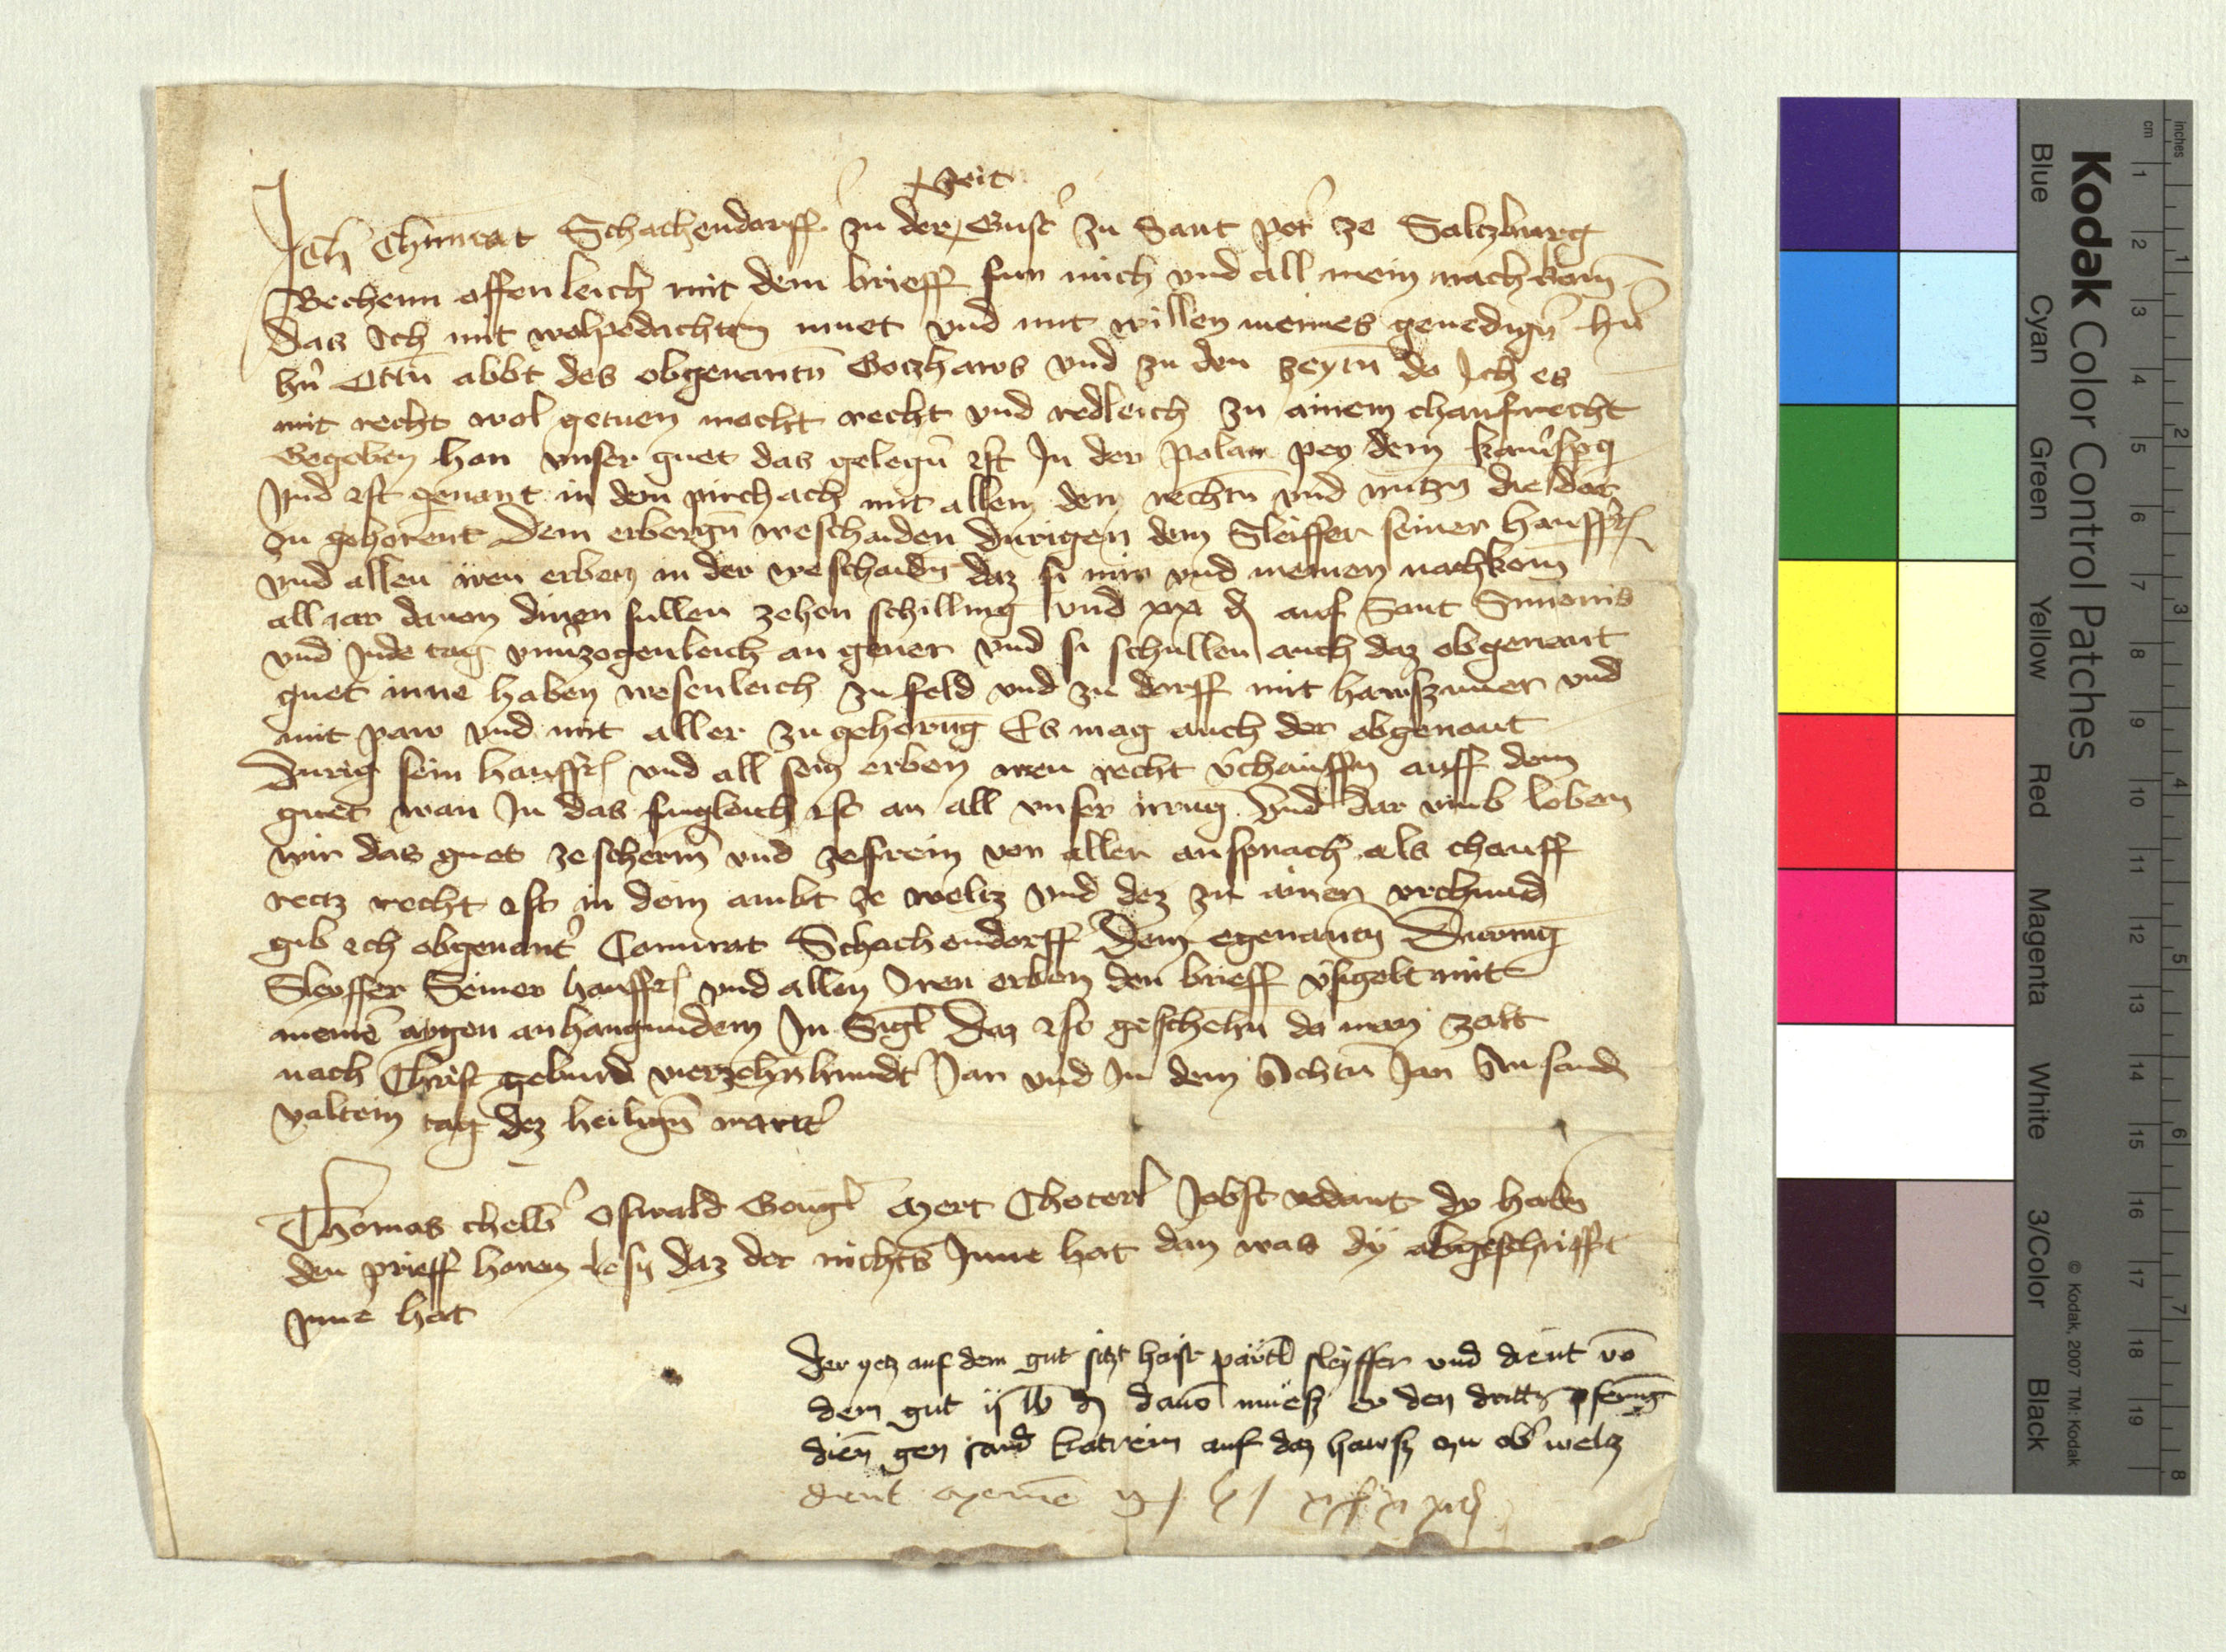 Zeit
Ich Chunrat Schachendorff zu der Gust' zu Sant pet' ze Saltzburg
Bechenn offenleich mit dem brieff fur mich vnd all mein nachkom̄
das Ich mit wolpedachtem muet vnd mit willen meines genedign̄ hn̄
hn̄ Ottn̄ abbt des obgenantn̄ Gotzhaws vnd zu den zeytn̄ do Ich es
mit recht wol getuen mocht recht vnd redleich zu ainem chaufrecht
Gegeben han vnser guet das gelegn̄ ist In der polan pey dem
vnd ist genant in dem pirchach mit allem den rechtn̄ vnd nutzn̄ die dar
zu gehorent Dem erbergn̄ weschaiden Durigen dem Sleiffer seiner hausfr
vnd allen iren erben in der weschaidn̄ daz si mir vnd meinen nachkom̄
all iar dauon dinen sullen zehen schilling vnd xx d auf Sant Simonis
vnd Jude tag vnuerzogenleich an geuer vnd si schullen auch daz obgenant
guet inne haben wesenleich zu feld vnd zu dorff mit hawszimer vnd
mit paw vnd mit aller zu gehorūg Es mag auch der obgenant
Durig sein hausfr vnd all sein erben iren recht v'chauffn̄ auff dem
guet wan In das fugleich ist an all vnser irrūg Vnd dar vmb loben
wir das guet ze scherm̄ vnd zefrein von aller ansprach als chauff
rectz recht ist in dem ambt ze weltz vnd dez zu ainen vrchund
gib ich obgenant' Connrat Schachendorff Dem egenantn̄During
Sleyffer Seiner hausfr vnd allen Iren erben den brieff v'sigelt mit
meinē aygen anhangundem In Sigl Daz ist geschehn̄ do man zalt
nach Christ geburd vierzehn̄hundt Jar vnd In dem Achtn̄ Jar An sand
valtein tag dez heilign̄ martr'
Thomas chelb' Oswald Gongl Mert Choterl Jobst vedant dy habn̄
den prieff horen lesn̄ daz der nichts Inne hat dan was dÿ abgeschrifft
ynne hat
Der yetz auf dem gut sitzt haist pärtl sleyffer vnd dient vō
dem gut ij lb d dauō muesz er den dritn̄ pfenng
dien̄ gen sand katrein auf daz hawsz zu ob' welz
dient